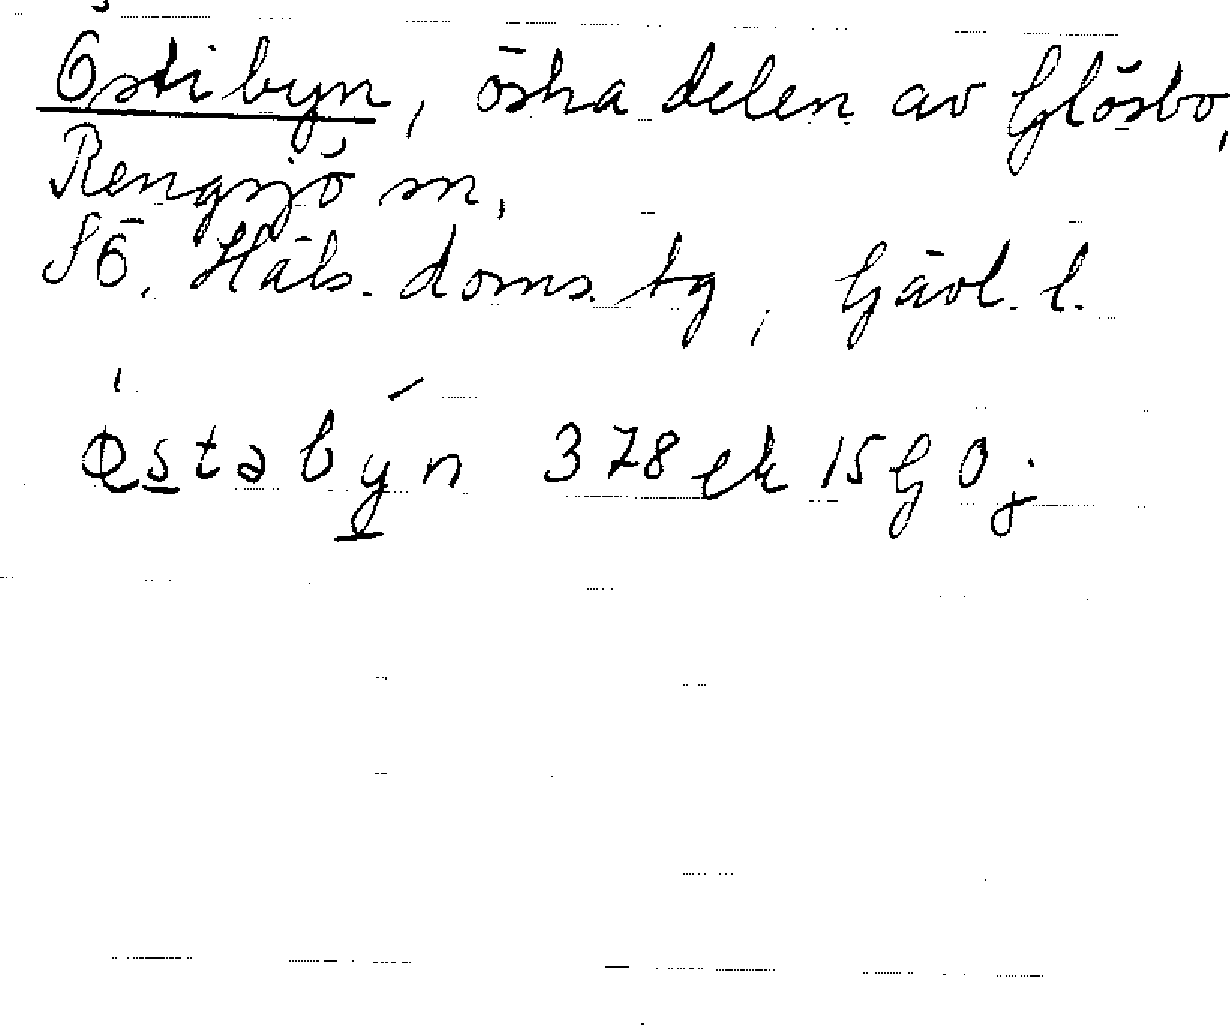 Östibyn, östra delen av Glösbo,
Rengsjö sn,
SÖ. Häls. doms. tg, Gävl. l.
östabyn 378 ek 15 G Oj